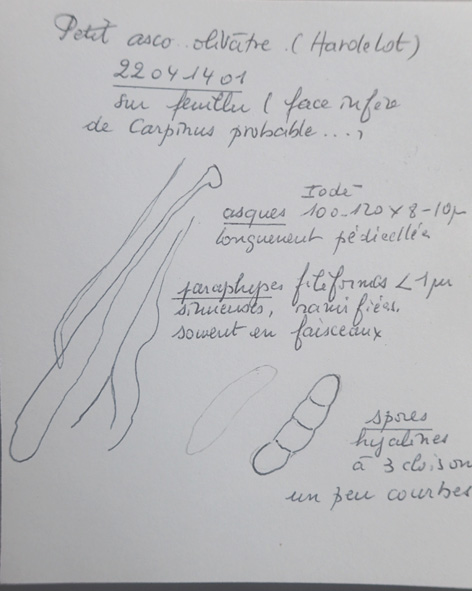 Petit asco. olivâtre. (Hardelot)
22041401
sur feuillu (face infère
de Carpinus probable....,
Iode-
asques 100-120 x 8-10µ
longuement pédicellés
paraphyses filiformes < 1 µm
sinueuses, ramifiées.
souvent en faisceaux
spores
hyalines
à 3 cloison
un peu courbes